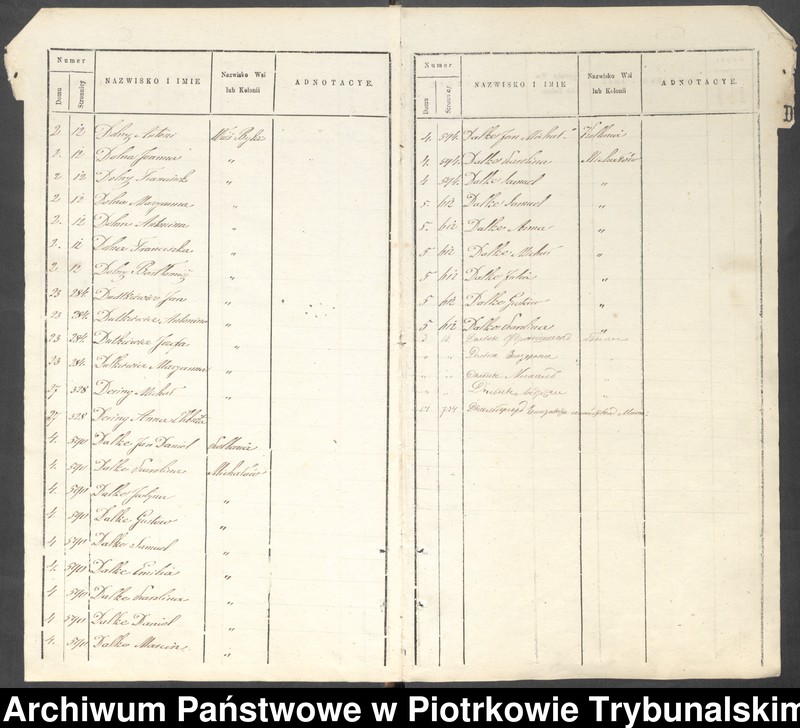 Numer
Domu Stronnicy NAZWISKO I IMIE Nazwisko Wsi lub Kolonii ADNOTACYE.
2 12 Dolny Antoni Wieś
2. 12 Dolna Joanna "
2 12 Dolny Franciszek "
2 12 Dolna Maryanna "
2. 12 Dolna Antonina "
2. 12 Dolna Franciszka "
2. 12 Dolny Bartłomiej "
23 284. Dutkiewicz Jan "
23 284. Dutkiewicz Antonina "
23 284. Dutkiewicz Józefa "
23 284. Dutkiewicz Maryanna "
27 328 Dering Michał "
27 328 Dering Anna Elżbieta "
4 590 Dalke Jan Daniel Kollonia
4. 590 Dalke Karolina Michałów
4 590 Dalke Justyna "
4 590 Dalke Gustaw "
4 590 Dalke Samuel "
4. 590 Dalke Emilia "
4 590 Dalke Karolina "
4 590 Dalke Daniel "
4. 590 Dalke Marcin "
Numer
Domu Stronnicy NAZWISKO I IMIE Nazwisko Wsi lub Kolonii ADNOTACYE.
4. 594. Dalke Jan Michał Kollonia
4. 594. Dalke Karolina Michałów
4 594. Dalke Samuel "
5 612 Dalke Samuel "
5. 612 Dalke Anna "
5 612 Dalke Michał "
5 612 Dalke Julia "
5 612 Dalke Gustaw "
5 612 Dalke Karolina "
Archiwum Państwowe w Piotrkowie Trybunalskim